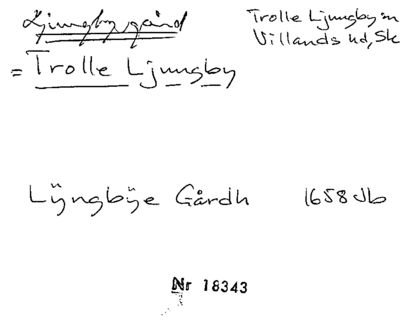 Ljungbygård
Trolle Ljungby sn
Villands hd, Sk
= Trolle Ljungby
Lÿngbÿe Gårdh 1658 Jb
Nr 18343